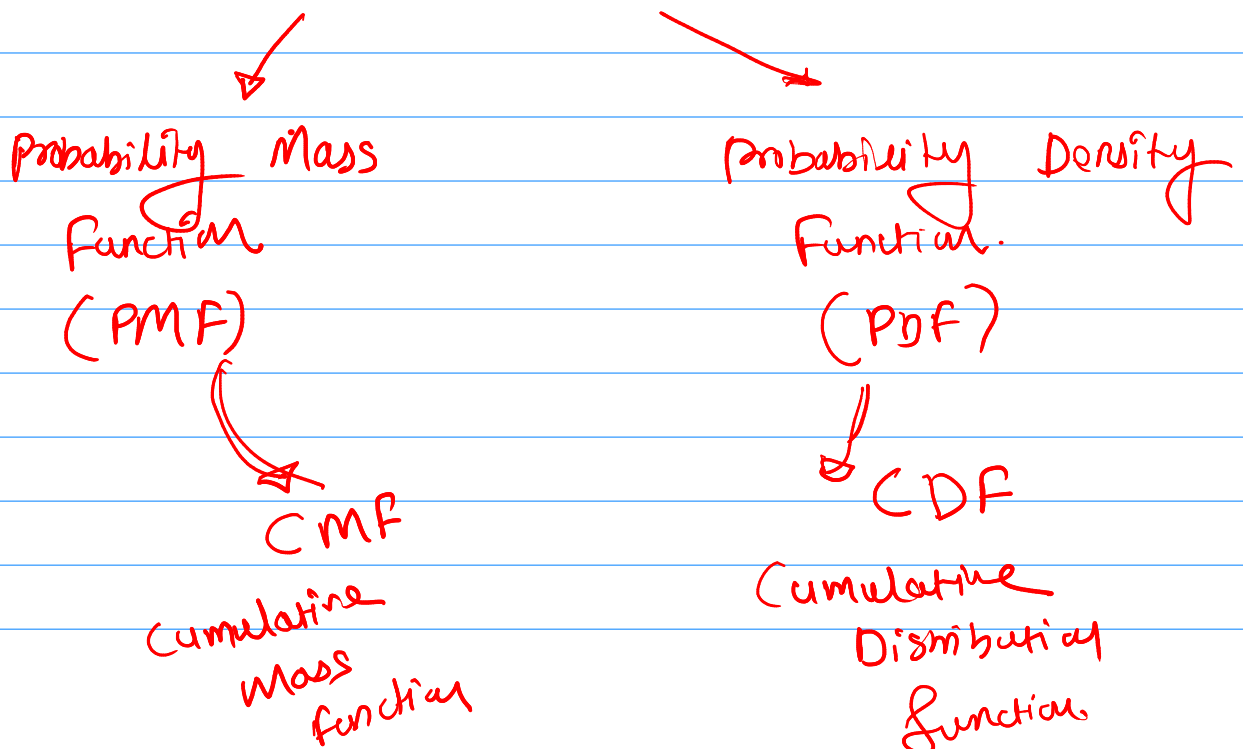 Probability Mass
Function
(PMF)
CMF
Cumulative
Mass
function
Probability Density
Function.
(PDF)
CDF
Cumulative
Distribution
function